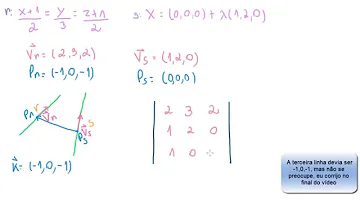 r: x+1/2 = y/3 = z+1/2
s: X = (0,0,0) + λ(1,2,0)
V⃗r = (2,3,2)
V⃗s = (1,2,0)
Pr = (-1,0,-1)
Ps = (0,0,0)
r
s
Pr
V⃗r
V⃗s
Ps
2 3 2
1 2 0
1 0
K⃗ = (-1,0,-1)
A terceira linha devia ser
-1,0,-1, mas não se
preocupe, eu corrijo no
final do vídeo